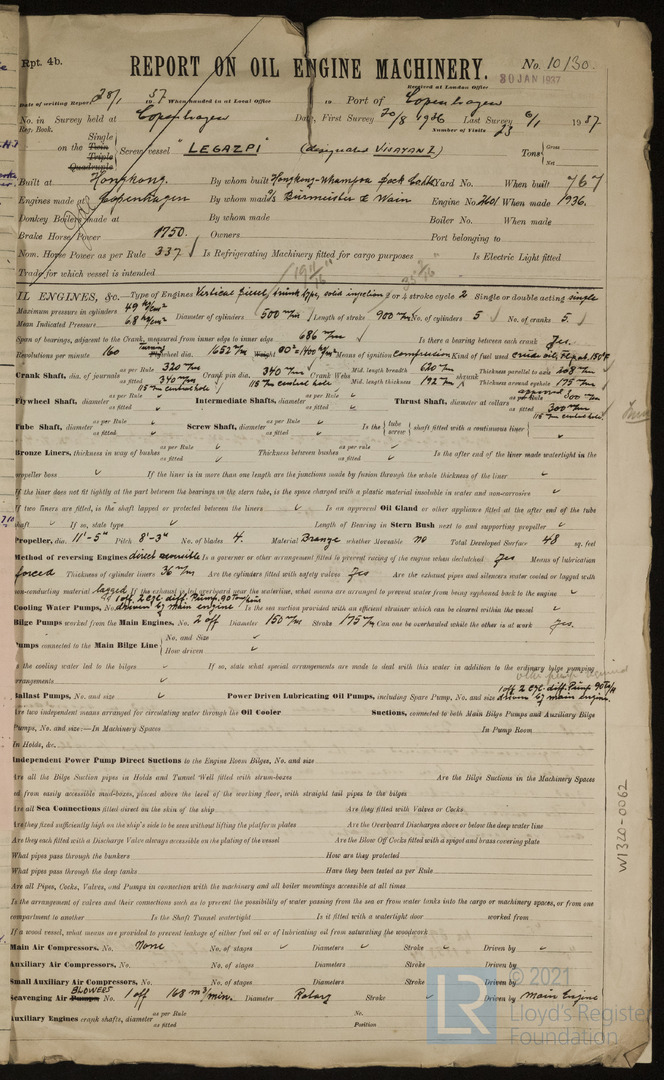 Rpt. 4b.
REPORT ON OIL ENGINE MACHINERY.
No. 10130.
Received at London Office
30 JAN 1937
Date of writing Report 28/1 1937 When handed in at Local Office 19 Port of Copenhagen
No. in Reg. Book. Survey held at Copenhagen Date, First Survey 20/8 1936 Last Survey 6/1 1937.
Number of Visits 23
on the Single Twin Triple Quadruple Screw vessel "LEGAZPI" (designated VISAYAN I) Tons Gross Net
Built at Hongkong. By whom built Hongkong-Whampoa Dock Yard No. 767 When built
Engines made at Copenhagen By whom made Burmeister & Wain Engine No. 2601 When made 1936.
Donkey Boilers made at By whom made Boiler No. When made
Brake Horse Power 1750. Owners Port belonging to
Nom. Horse Power as per Rule 337 Is Refrigerating Machinery fitted for cargo purposes Is Electric Light fitted
Trade for which vessel is intended
IL ENGINES, &c.—Type of Engines Vertical Diesel, trunk type, solid injection 2 or 4 stroke cycle 2 Single or double acting single
Maximum pressure in cylinders 49 kg/cm² Diameter of cylinders 500 m/m Length of stroke 900 m/m No. of cylinders 5 No. of cranks 5.
Mean Indicated Pressure 6.8 kg/cm²
Span of bearings, adjacent to the Crank, measured from inner edge to inner edge 686 m/m Is there a bearing between each crank Yes.
Revolutions per minute 160 Turning wheel dia. 1652 m/m Weight Means of ignition compression Kind of fuel used crude oil, Fl.point 150°F
Crank Shaft, dia. of journals as per Rule 320 m/m as fitted 340 m/m 115 m/m central hole Crank pin dia. 340 m/m 115 m/m central hole Crank Webs Mid. length breadth 620 m/m Mid. length thickness 192 m/m shrunk Thickness parallel to axis 208 m/m Thickness around eyehole 175 m/m
Flywheel Shaft, diameter as per Rule as fitted Intermediate Shafts, diameter as per Rule as fitted Thrust Shaft, diameter at collars approved as per Rule 300 m/m as fitted 300 m/m 115 m/m central hole.
Tube Shaft, diameter as per Rule as fitted Screw Shaft, diameter as per Rule as fitted Is the tube screw shaft fitted with a continuous liner
Bronze Liners, thickness in way of bushes as per Rule as fitted Thickness between bushes as per rule as fitted Is the after end of the liner made watertight in the
propeller boss If the liner is in more than one length are the junctions made by fusion through the whole thickness of the liner
If the liner does not fit tightly at the part between the bearings in the stern tube, is the space charged with a plastic material insoluble in water and non-corrosive
If two liners are fitted, is the shaft lapped or protected between the liners Is an approved Oil Gland or other appliance fitted at the after end of the tube
shaft If so, state type Length of Bearing in Stern Bush next to and supporting propeller
Propeller, dia. 11'-5" Pitch 8'-3" No. of blades 4. Material Bronze whether Moveable no Total Developed Surface 48 sq. feet
Method of reversing Engines direct reversible Is a governor or other arrangement fitted to prevent racing of the engine when declutched Yes Means of lubrication
forced Thickness of cylinder liners 36 m/m Are the cylinders fitted with safety valves Yes Are the exhaust pipes and silencers water cooled or lagged with
non-conducting material lagged If the exhaust is led overboard near the waterline, what means are arranged to prevent water from being syphoned back to the engine
Cooling Water Pumps, No. 1 off 2 cyl. diff. Pump, 90 Ton/h driven by main engine Is the sea suction provided with an efficient strainer which can be cleared within the vessel
Bilge Pumps worked from the Main Engines, No. 2 off Diameter 150 m/m Stroke 175 m/m Can one be overhauled while the other is at work Yes.
Pumps connected to the Main Bilge Line No. and Size How driven
Is the cooling water led to the bilges If so, state what special arrangements are made to deal with this water in addition to the ordinary bilge pumping
arrangements
Ballast Pumps, No. and size Power Driven Lubricating Oil Pumps, including Spare Pump, No. and size 1 off 2 cyl. diff. Pump 90 Ton/h driven by main engine.
Are two independent means arranged for circulating water through the Oil Cooler Suctions, connected to both Main Bilge Pumps and Auxiliary Bilge
Pumps, No. and size:—In Machinery Spaces In Pump Room
In Holds, &c.
Independent Power Pump Direct Suctions to the Engine Room Bilges, No. and size
Are all the Bilge Suction pipes in Holds and Tunnel Well fitted with strum-boxes Are the Bilge Suctions in the Machinery Spaces
led from easily accessible mud-boxes, placed above the level of the working floor, with straight tail pipes to the bilges
Are all Sea Connections fitted direct on the skin of the ship Are they fitted with Valves or Cocks
Are they fixed sufficiently high on the ship's side to be seen without lifting the platform plates Are the Overboard Discharges above or below the deep water line
Are they each fitted with a Discharge Valve always accessible on the plating of the vessel Are the Blow Off Cocks fitted with a spigot and brass covering plate
What pipes pass through the bunkers How are they protected
What pipes pass through the deep tanks Have they been tested as per Rule
Are all Pipes, Cocks, Valves, and Pumps in connection with the machinery and all boiler mountings accessible at all times
Is the arrangement of valves and their connections such as to prevent the possibility of water passing from the sea or from water tanks into the cargo or machinery spaces, or from one
compartment to another Is the Shaft Tunnel watertight Is it fitted with a watertight door worked from
If a wood vessel, what means are provided to prevent leakage of either fuel oil or of lubricating oil from saturating the woodwork
Main Air Compressors, No. None No. of stages Diameters Stroke Driven by
Auxiliary Air Compressors, No. No. of stages Diameters Stroke Driven by
Small Auxiliary Air Compressors, No. No. of stages Diameters Stroke Driven by
Scavenging Air Pumps, BLOWERS No. 1 off 168 m³/min. Diameter Rotary Stroke Driven by Main Engine
Auxiliary Engines crank shafts, diameter as per Rule as fitted No. Position
W1320-0062
LR
© 2021
Lloyd's Register
Foundation